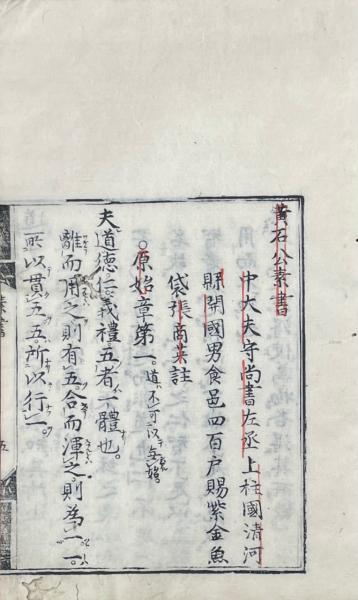 黄石公素書
中大夫守尚書左丞上柱國清河
縣開國男食邑四百戶賜紫金魚
袋張商英註
。原始章第一。道不可以無始
夫道德仁義禮五者一體也。
離而用之則有五合而渾之則為一一
所以貫五五所以行一。
素書
五